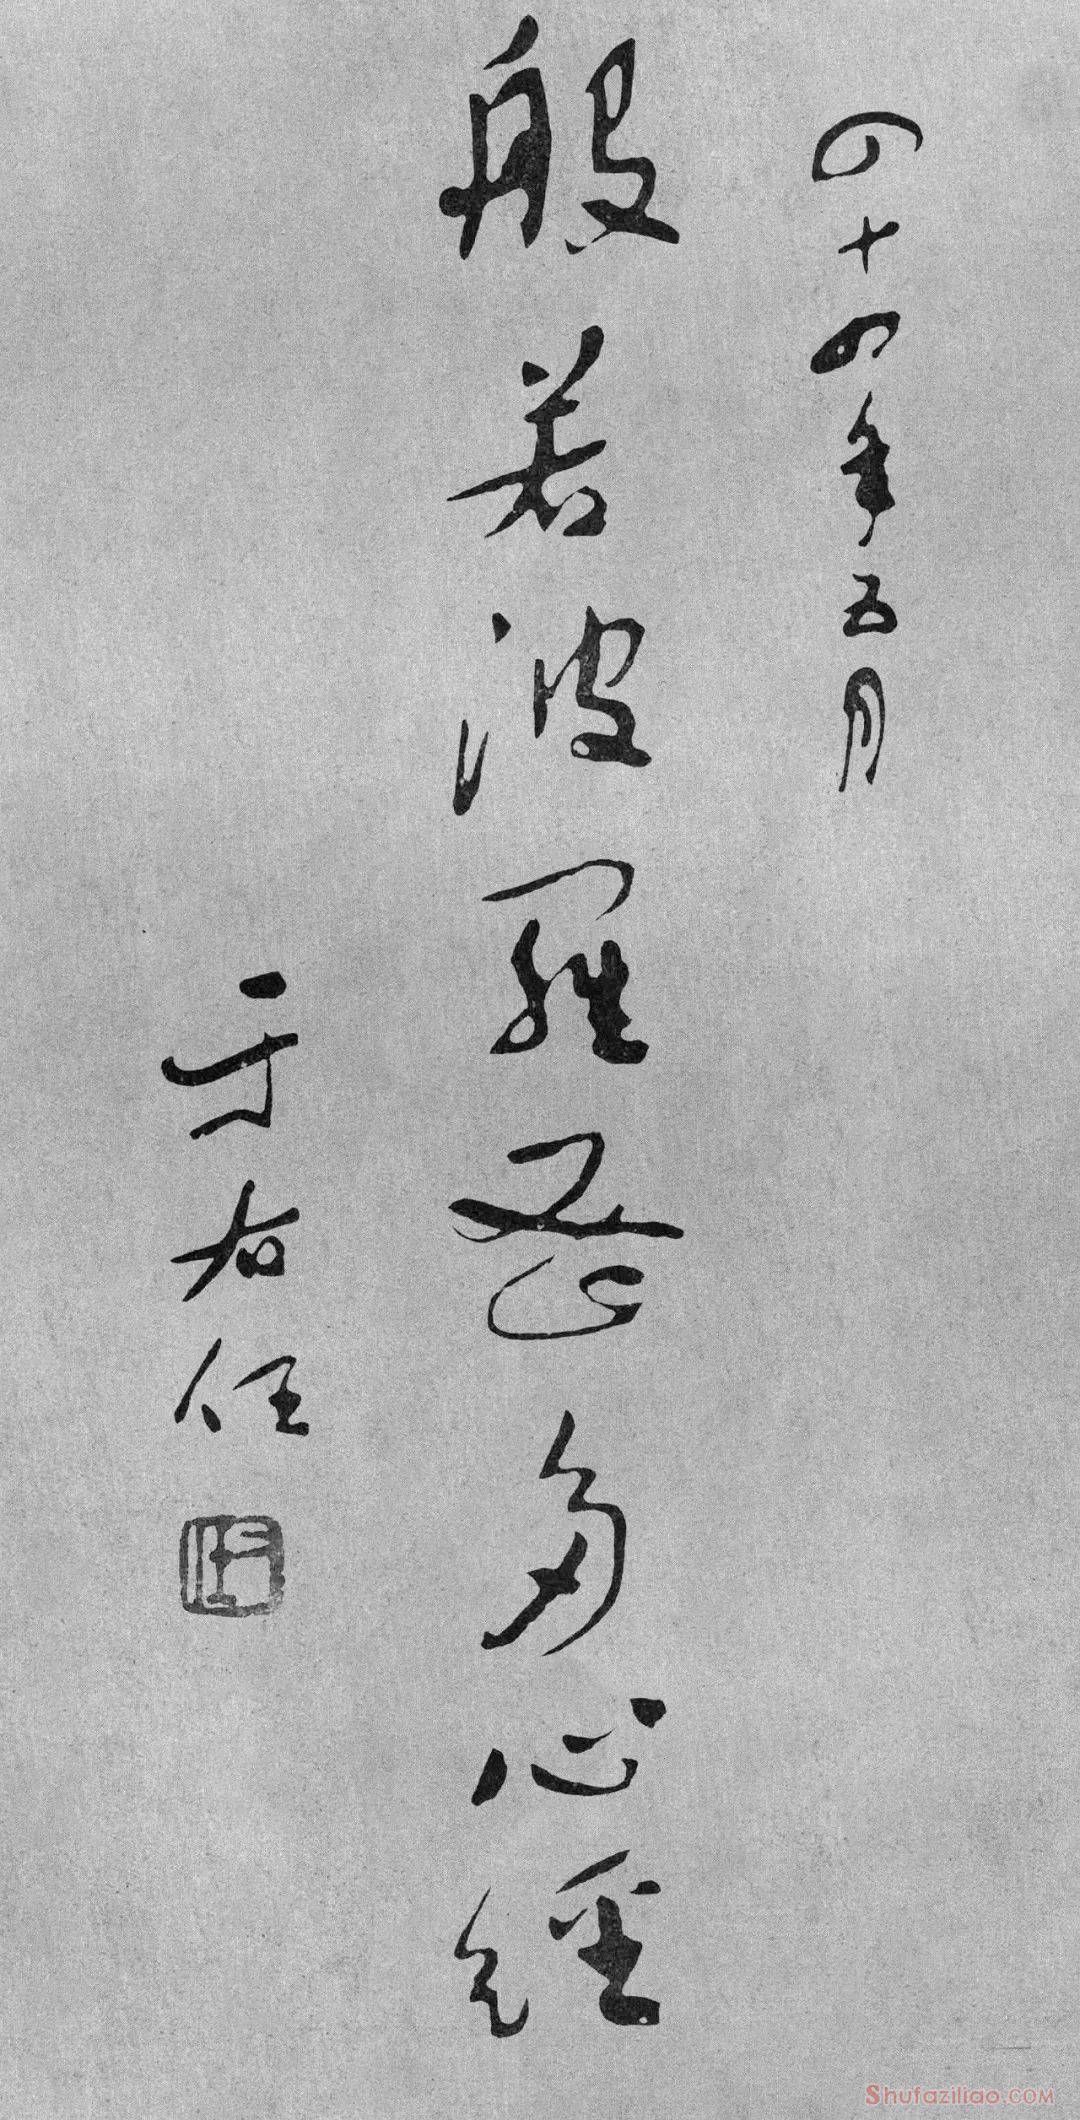 四十四年五月
般若波羅蜜多心經
于右任
Shufaziliao.COM